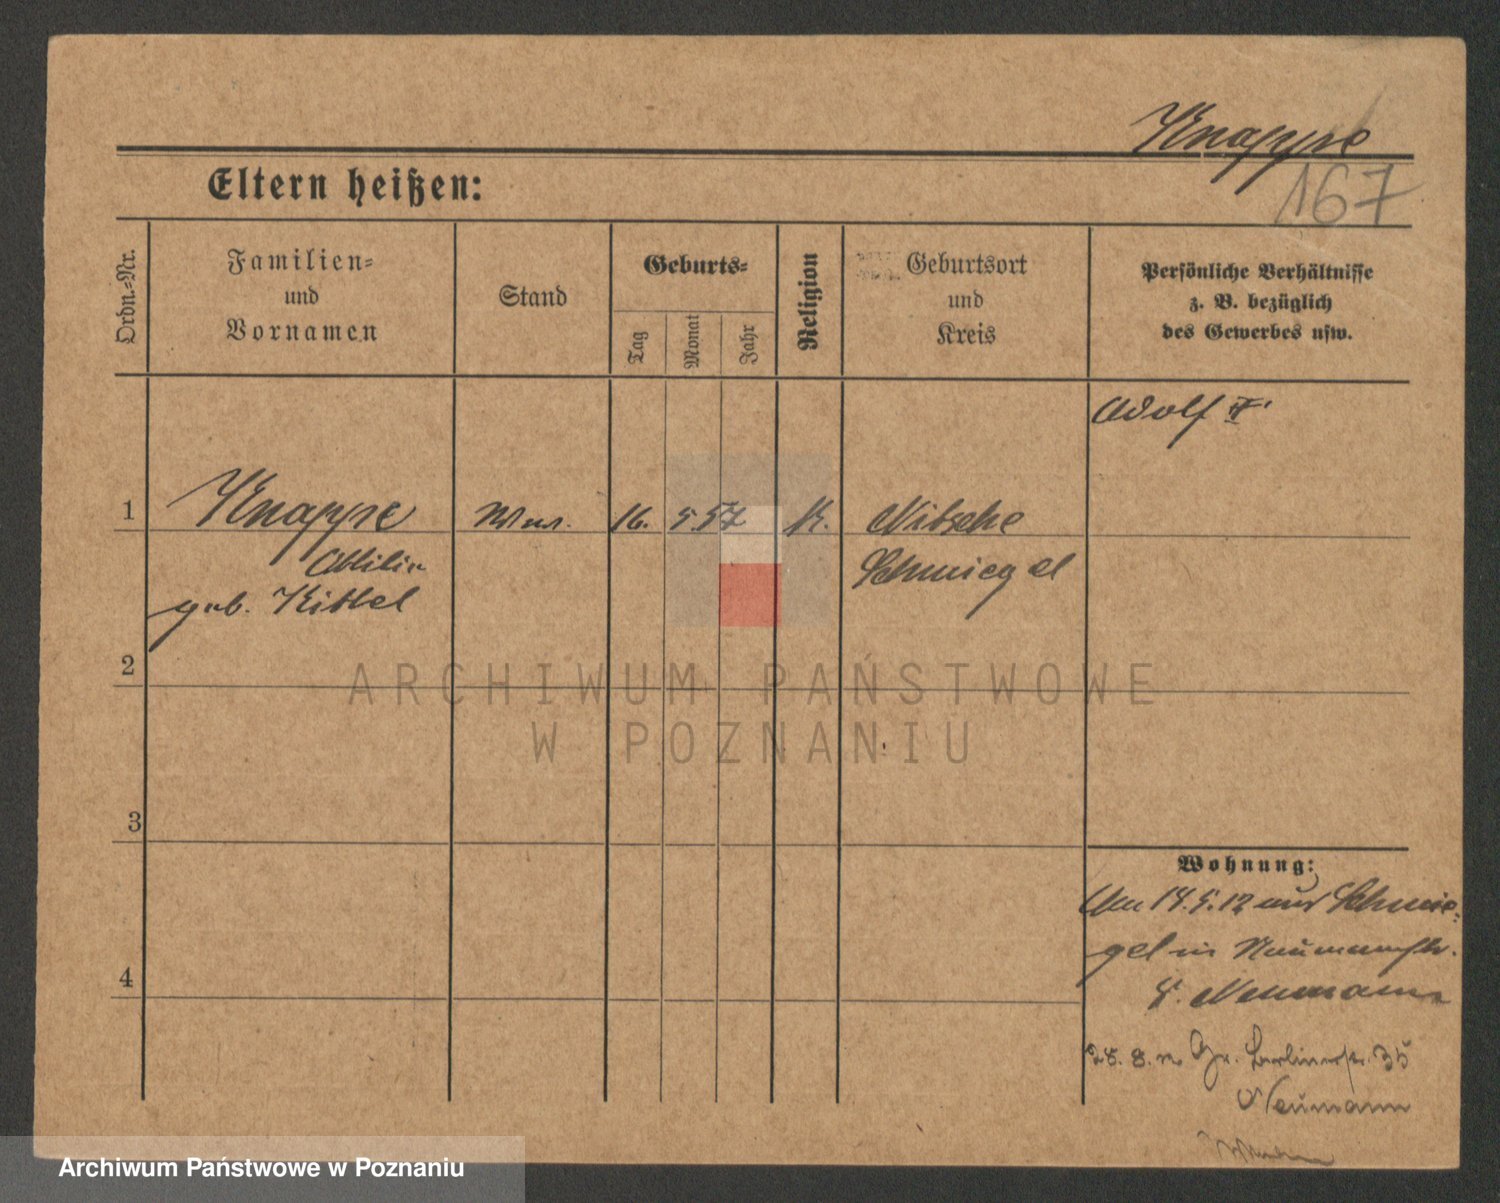 Knappe
167
Eltern heißen:
Ordn.-Nr.
Familien-
und
Vornamen
Stand
Geburts-
Tag
Monat
Jahr
Religion
Geburtsort
und
Kreis
Persönliche Verhältnisse
z. B. bezüglich
des Gewerbes usw.
Adolf †
1
Knappe
Wwe.
16.
5.
57
k.
Nitsche
Schmiegel
Ottilie
geb. Kittel
2
3
4
Wohnung:
Am 14.5.12 aus Schmie-
gel in Naumannstr.
5. Neumann
28. 8. n Gr. Berlinerstr. 35
Neumann
ARCHIWUM PAŃSTWOWE
W POZNANIU
Archiwum Państwowe w Poznaniu